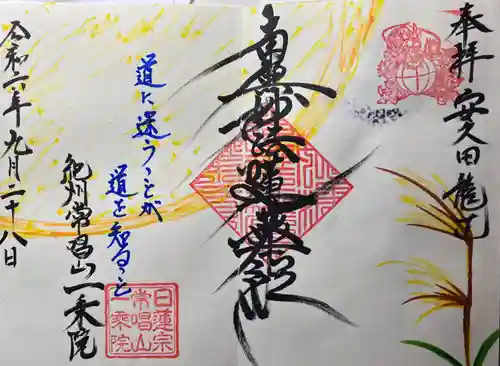 奉拝 安久田龍了
南無妙法蓮華経
道に迷うことが
道を知ること
紀州常唱山一乗院
令和六年九月二十八日
日蓮宗
常唱山
一乗院